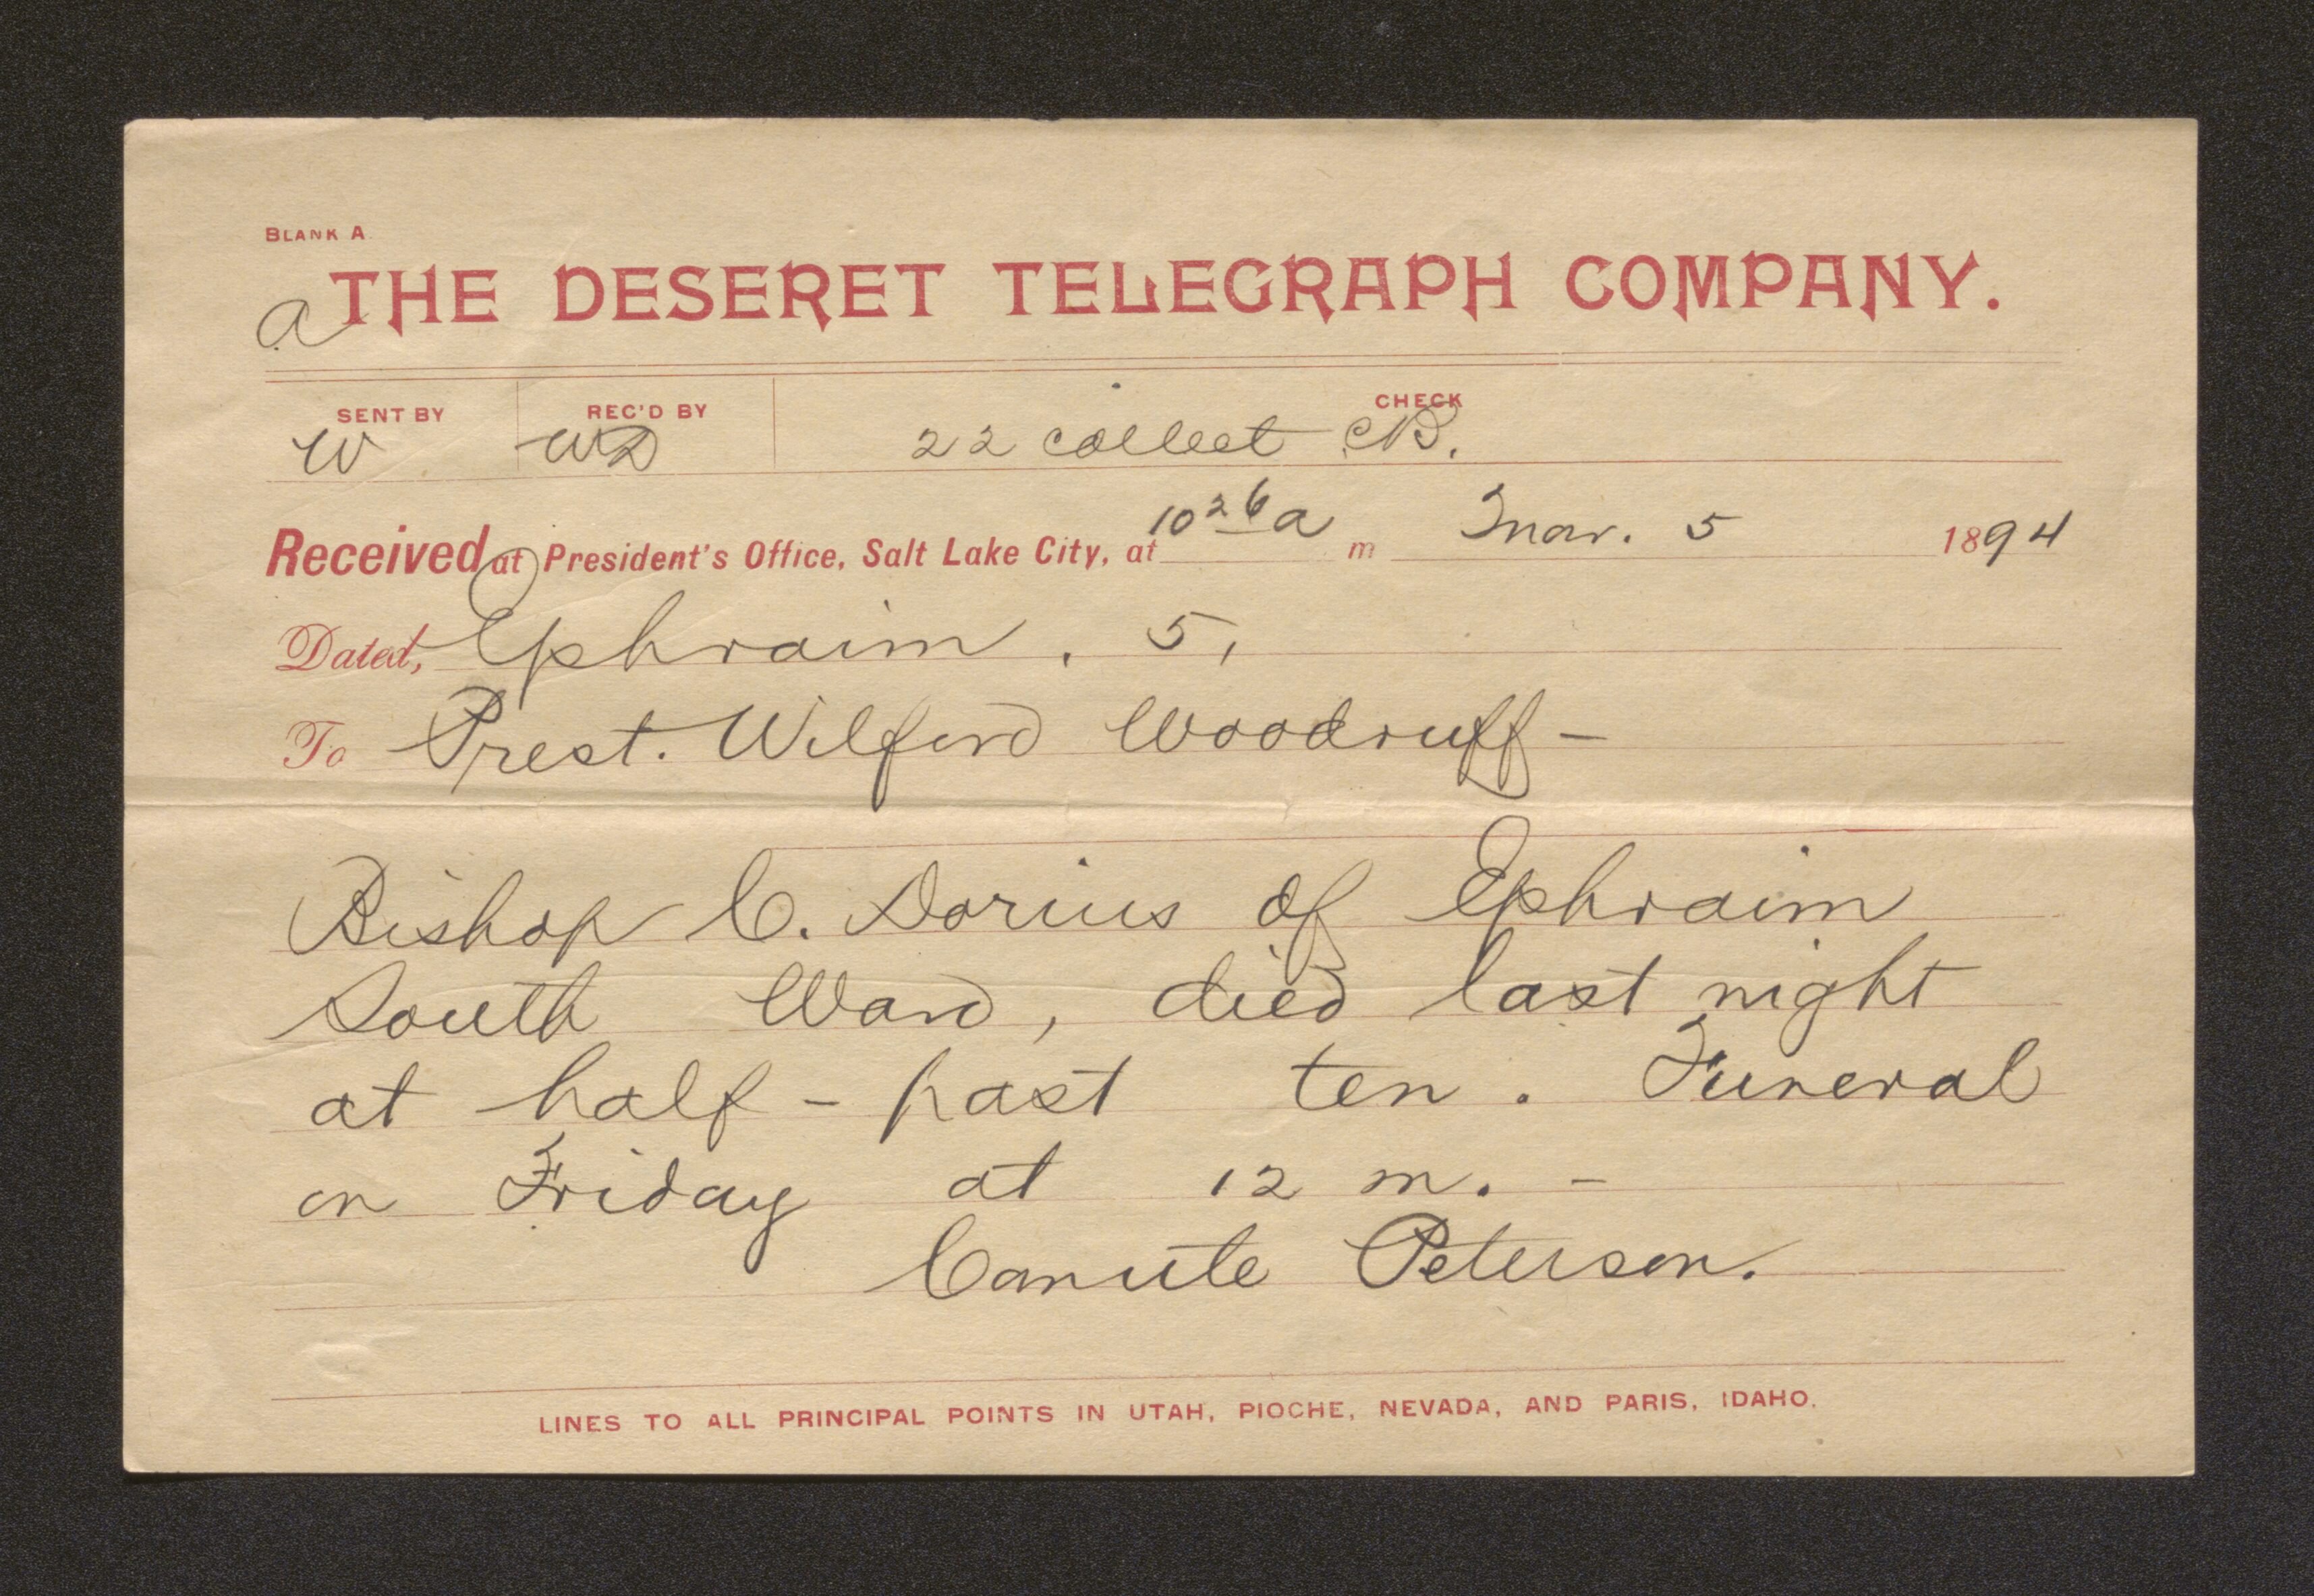 BLANK A
a THE DESERET TELEGRAPH COMPANY.
SENT BY REC'D BY CHECK
W WD 22 collect
Received at President's Office, Salt Lake City, at 10 26 a m Mar. 5 1894
Dated, Ephraim. 5,
To Prest. Wilford Woodruff-
Bishop C. Dorius of Ephraim
South Ward, died last night
at half-past ten. Funeral
on Friday at 12 m. -
Canute Peterson.
LINES TO ALL PRINCIPAL POINTS IN UTAH, PIOCHE, NEVADA, AND PARIS, IDAHO.